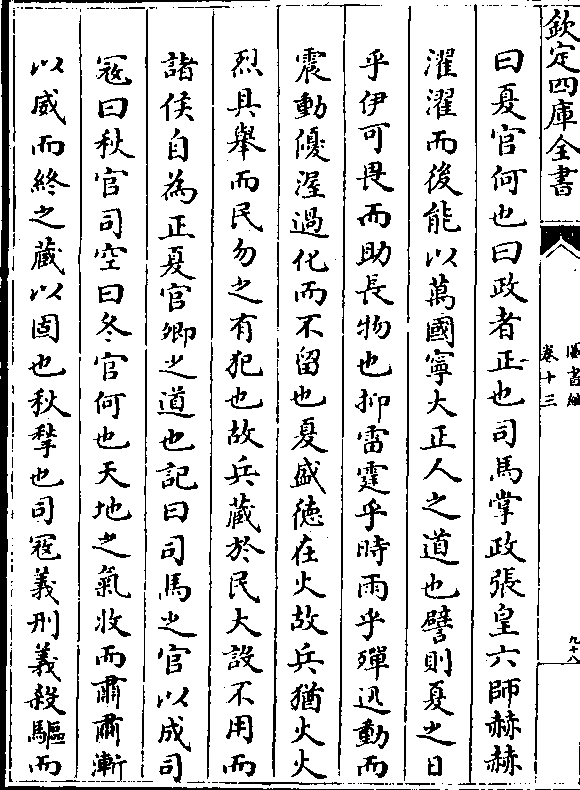 欽定四庫全書
卷十三
九十八
曰夏官何也曰政者正也司馬掌政張皇六師赫赫
濯濯而後能以萬國寧大正人之道也譬則夏之日
乎伊可畏而助長物也抑雷霆乎時雨乎殫迅動而
震動優渥過化而不留也夏盛徳在火故兵猶火火
烈具舉而民勿之有犯也故兵藏於民大設不用而
諸侯自為正夏官卿之道也記曰司馬之官以成司
冦曰秋官司空曰冬官何也天地之氣收而肅肅漸
以威而終之藏以固也秋揫也司冦義刑義殺驅而